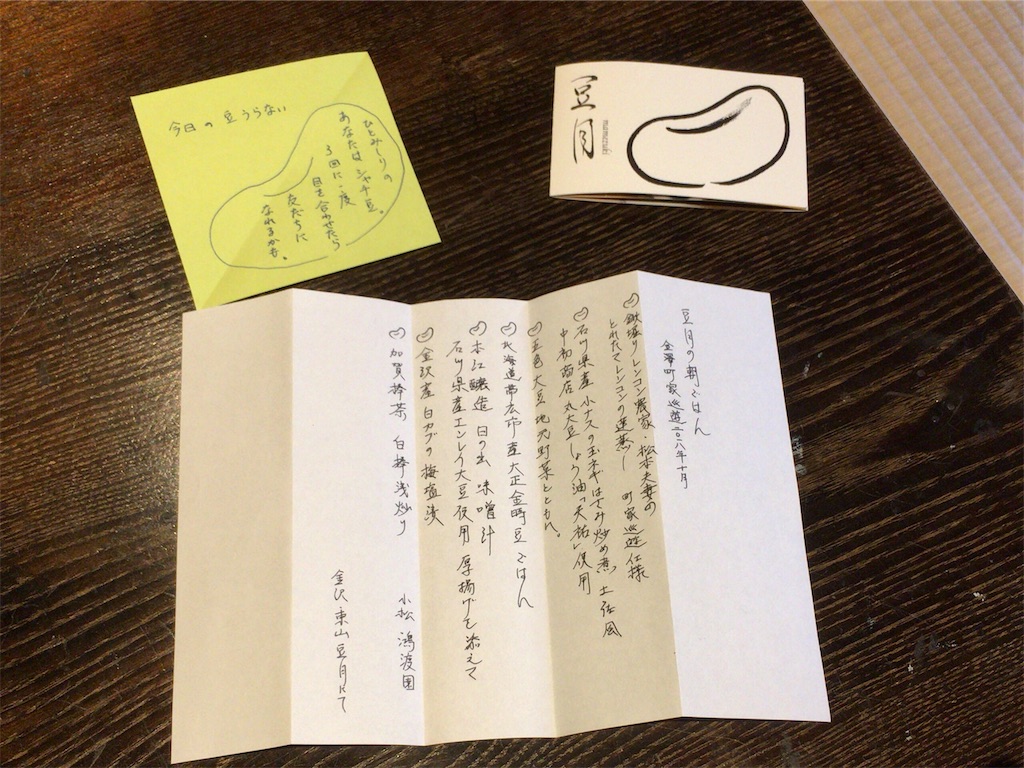 今日の豆うらない
ひとみしりの
あなたは シャチ豆。
3回に一度
目を合わせたら
友だちに
なれるかも。
豆月
mamezuki
豆月の朝ごはん
金澤町家巡遊二〇一八年十月
鍬塚リレンコン農家・松本夫妻の
とれたてレンコンの蓮蒸し 町家巡遊仕様
石川県産 小ナスの玉ネギはさみ炒め煮 土佐風
中初商店 丸大豆しょう油「天祐」使用
五色大豆 地元野菜とともに。
北海道帯広市産 大正金時豆ごはん
本江醸造 日の出 味噌汁
石川県産エンレイ大豆使用 厚揚げを添えて
金沢産 白カブの梅塩漬
加賀棒茶 白棒浅炒り
小松 鴻渡園
金沢東山豆月にて